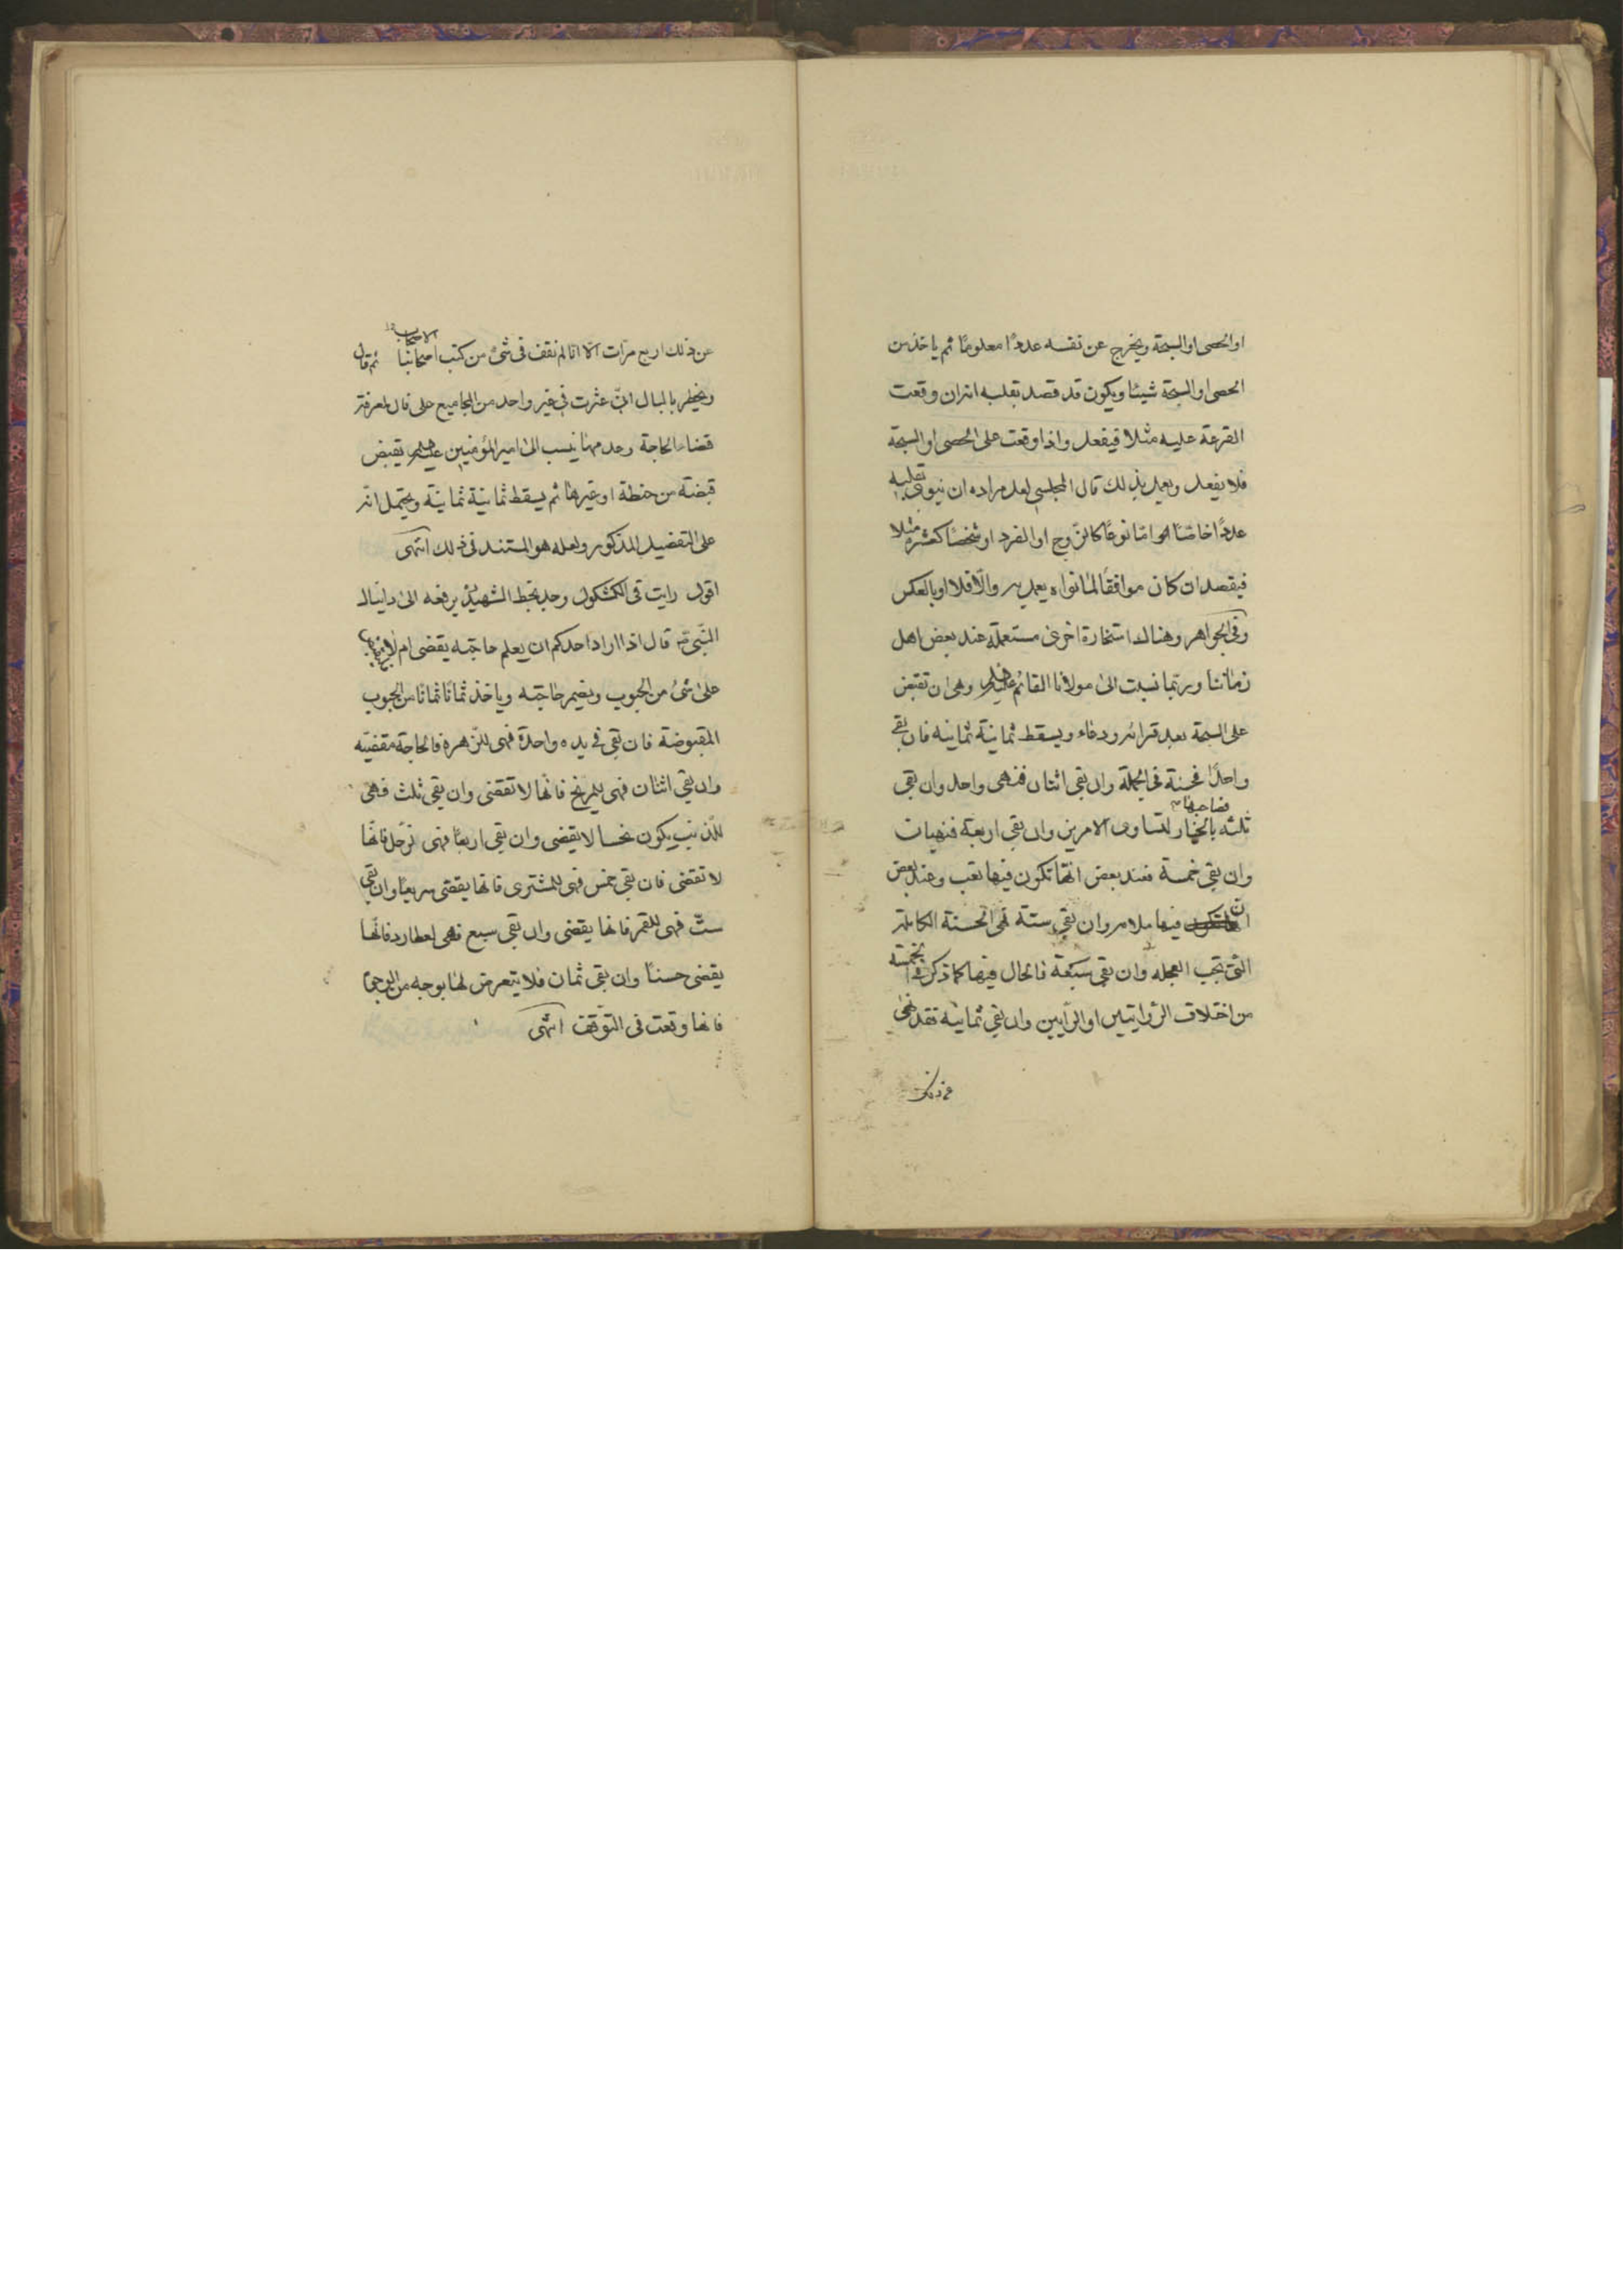 او الحصى او السبحة ويخرج عن نفسه عددًا معلومًا ثم ياخذ من
الحصى او السبحة شيئا ويكون قد قصد بقلبه انه ان وقعت
القرعة عليه مثلا فيفعل واذا وقعت على الحصى او السبحة
فلا يفعل ويعمل بذلك قال المجلسى لعل مراده ان ينوى بقلبه
عددًا خاصًا اما نوعًا كالزوج او الفرد او شخصًا كعشرة مثلا
فيقصد ان كان موافقًا لما نواه يعمل به والّا فلا او بالعكس
وفى الجواهر وهناك استخارة اخرى مستعملة عند بعض اهل
زماننا وربّما نسبت الى مولانا القائم عليه السلم وهى ان تقبض
على السبحة بعد قرائة ودعاء ويسقط ثمانية ثمانية فان بقى
واحدًا فحسنة فى الجملة وان بقى اثنان فنهى واحد وان بقى
ثلثه فصاحبها بالخيار لتساوى الامرين وان بقى اربعة فنهيان
وان بقى خمسة فعند بعض انّها تكون فيها تعب وعند بعض
انّ فيها ملامه وان بقى ستة فهى الحسنة الكاملة
التى تجب العجله وان بقى سبعة فالحال فيها كما ذكر فى الخمسة
من اختلاف الرّوايتين او الرّايين وان بقى ثمانية فقد نهى
عن ذلك
عن ذلك اربع مرّات الّا انّا لم نقف فى شئ من كتب اصحابنا الاصحاب ثم قال
ويخطر بالبال انّى عثرت فى غير واحد من المجاميع على فال لمعرفة
قضاء الحاجة وعدمها ينسب الى امير المؤمنين عليه السلم يقبض
قبضة من حنطة او غيرها ثم يسقط ثمانية ثمانية ويحتمل انّه
على التفضيل المذكور ولعله هو المستند فى ذلك انتهى
اقول رايت فى الكشكول وجد بخط الشهيد يرفعه الى دانيال
النّبى قال اذا اراد احدكم ان يعلم حاجته يقضى ام لا
على شئ من الحبوب ويضمر حاجته وياخذ ثمانًا ثمانًا من الحبوب
المقبوضة فان بقى فى يده واحدة فهى للزهرة فالحاجة مقضيّه
وان بقى اثنان فهى للمريخ فانّها لا تقضى وان بقى ثلث فهى
للذنب يكون نحسا لا يقضى وان بقى اربعًا فهى لزحل فانّها
لا تقضى فان بقى خمس فهى للمشترى فانّها يقضى سريعًا وان بقى
ستّ فهى للقمر فانها يقضى وان بقى سبع فهى لعطارد فانّها
يقضى حسنًا وان بقى ثمان فلا يتعرض لها بوجه من الوجوه
فانها وقعت فى التوقف انتهى